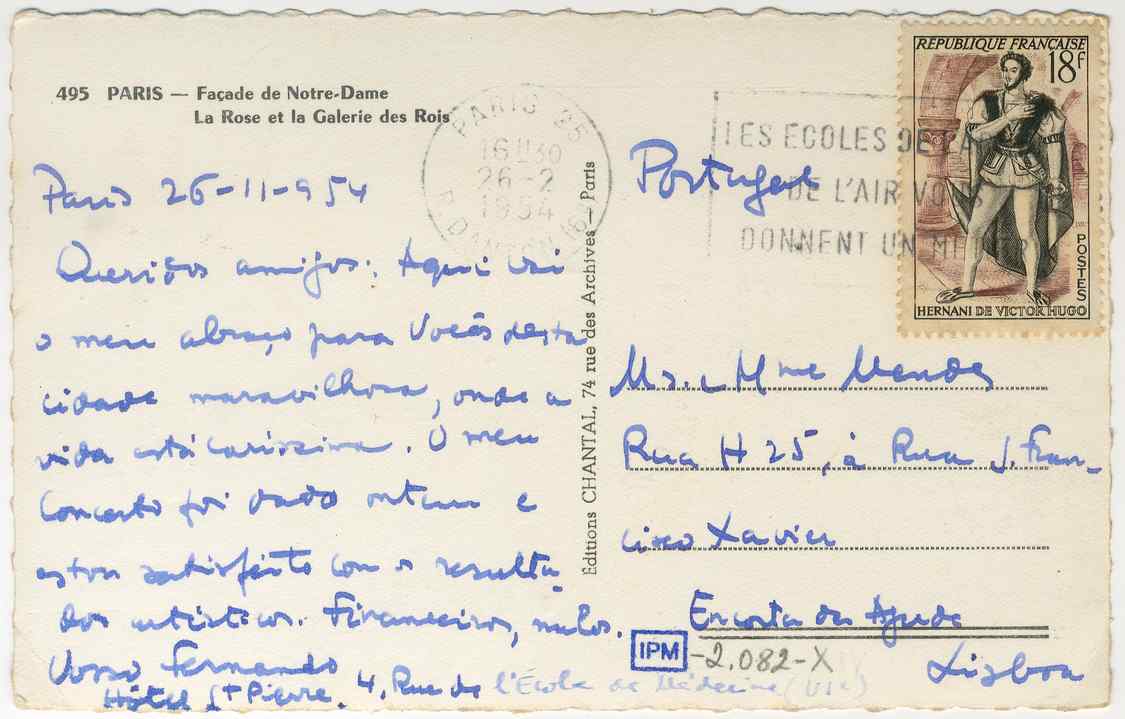 495 PARIS — Façade de Notre-Dame
La Rose et la Galerie des Rois
Paris 26-11-954
Queridos amigos: Aqui vai
o meu abraço para Vocês desta
cidade maravilhosa, onde a
vida está caríssima. O meu
Concerto foi dado ontem e
estou satisfeito com o resulta-
dos artísticos. Financeiros, nulos.
Vosso Fernando
Hôtel St Pierre. 4, Rue de l'École de Médecine (VIe)
Editions CHANTAL, 74 rue des Archives — Paris
PARIS 25
16H30
26-2
1954
R. DANTON (6e)
LES ECOLES DE L'A
DE L'AIR VOUS
DONNENT UN METIER
REPUBLIQUE FRANÇAISE
18f
POSTES
HERNANI DE VICTOR HUGO
Portugal
Mr. e Mme Mendes
Rua H 25, à Rua J. Fran-
cisco Xavier
Encosta da Ajuda
Lisboa
IPM -2.082-X